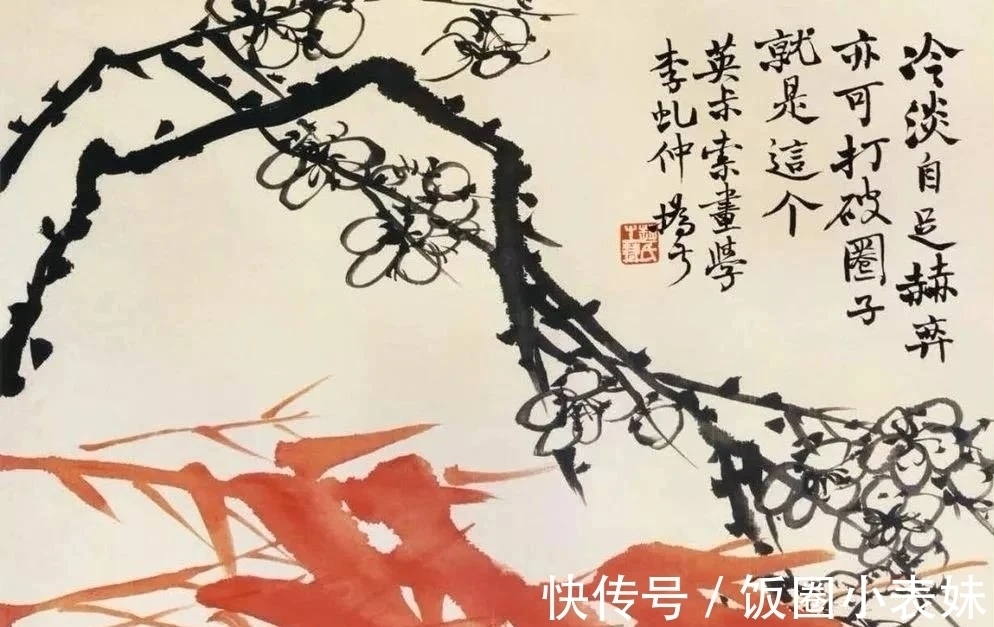 冷淡自足赫弈
亦可打破圈子
就是這个
英卡索畫學
李虬仲
快传号 / 饭圈小表妹